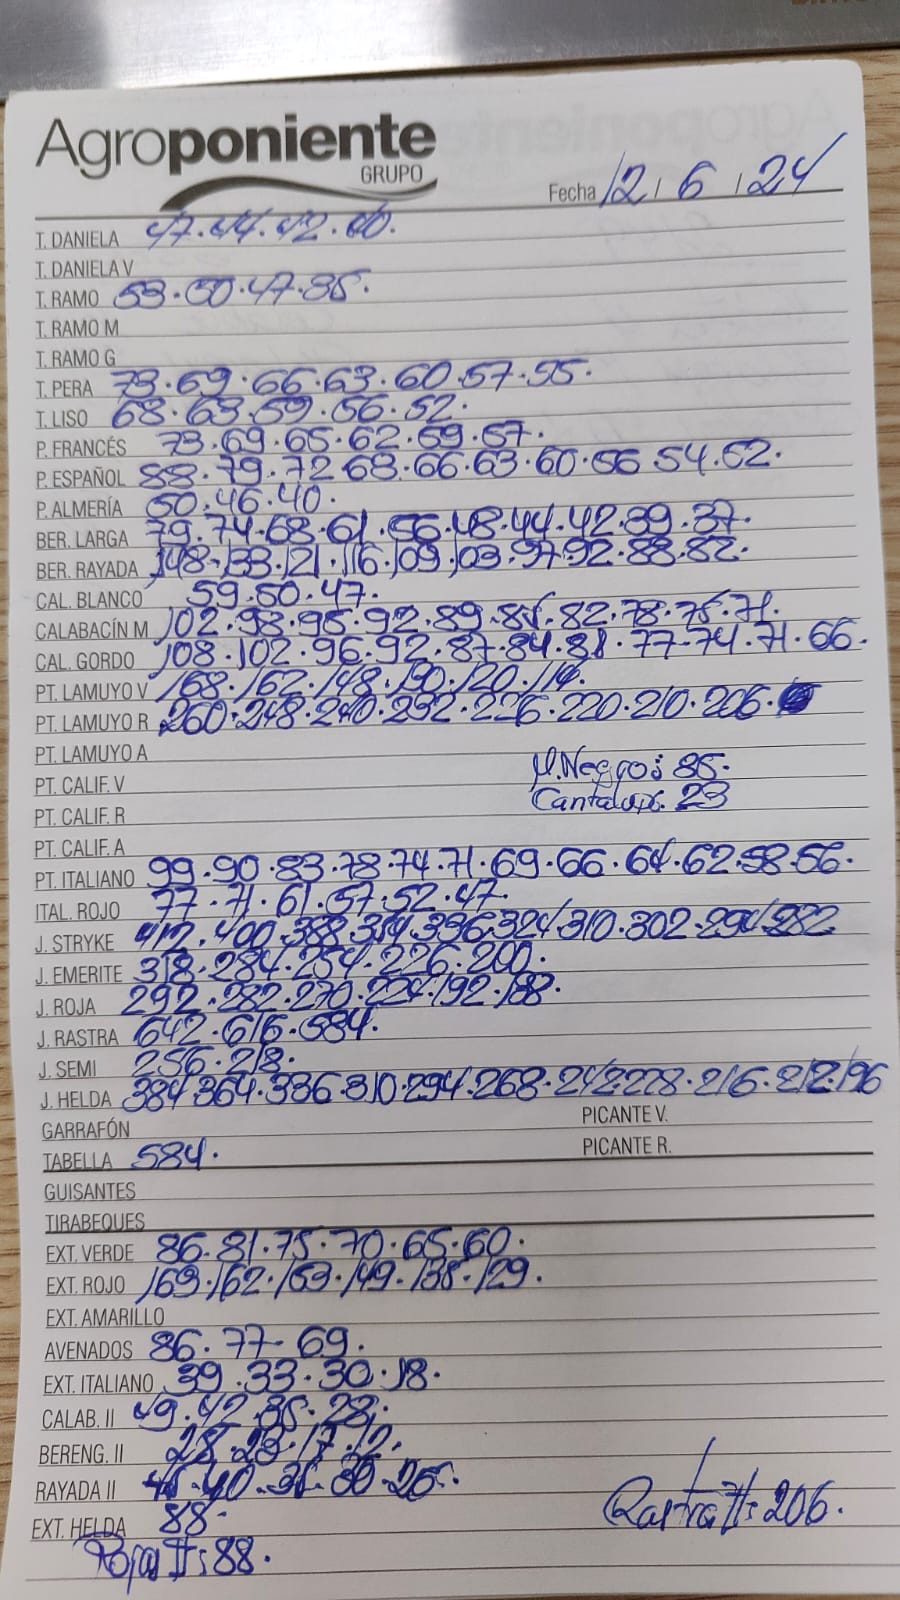 Agroponiente
GRUPO
Fecha 12 / 6 / 24
T. DANIELA 47.44.42.40.
T. DANIELA V
T. RAMO 53.50.47.35.
T. RAMO M
T. RAMO G
T. PERA 73.69.66.63.60.57.55.
T. LISO 68.63.59.56.52.
P. FRANCÉS 73.69.65.62.59.57.
P. ESPAÑOL 88.79.72.68.66.63.60.56.54.52.
P. ALMERÍA 50.46.40.
BER. LARGA 79.74.68.61.56.48.44.42.39.37.
BER. RAYADA 148.133.121.116.109.103.97.92.88.82.
CAL. BLANCO 59.50.47.
CALABACÍN M 102.98.95.92.89.85.82.78.75.71.
CAL. GORDO 108.102.96.92.87.84.81.77.74.71.66.
PT. LAMUYO V 168.162.148.130.120.114.
PT. LAMUYO R 260.248.240.232.226.220.210.206.
PT. LAMUYO A
M. Negro: 85.
PT. CALIF. V
Cantaloup. 23
PT. CALIF. R
PT. CALIF. A
PT. ITALIANO 99.90.83.78.74.71.69.66.64.62.58.56.
ITAL. ROJO 77.71.61.57.52.47.
J. STRYKE 412.400.388.354.336.324.310.302.294.282
J. EMERITE 318.284.254.226.200.
J. ROJA 292.282.270.224.192.188.
J. RASTRA 642.616.584.
J. SEMI 256.218.
J. HELDA 384.364.336.310.294.268.242.228.216.212.196
GARRAFÓN PICANTE V.
TABELLA 584. PICANTE R.
GUISANTES
TIRABEQUES
EXT. VERDE 86.81.75.70.65.60.
EXT. ROJO 169.162.153.149.138.129.
EXT. AMARILLO
AVENADOS 86.77.69.
EXT. ITALIANO 39.33.30.18.
CALAB. II 49.42.35.28.
BERENG. II 28.23.17.12.
RAYADA II 45.40.35.30.25.
EXT. HELDA 88.
Rastra II: 206.
Rojas II: 88.